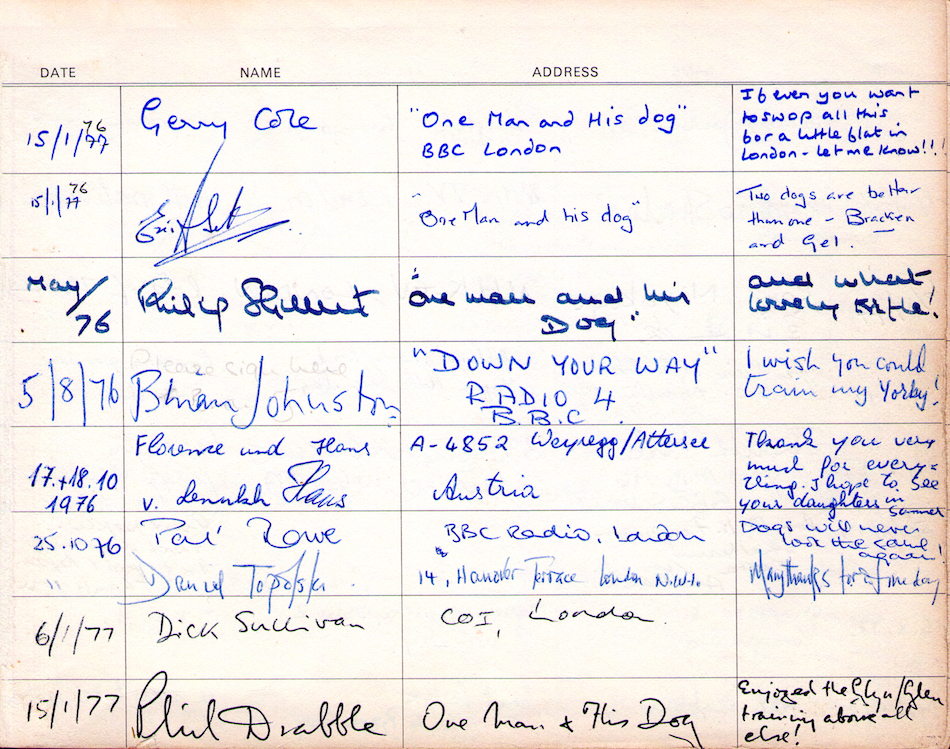 DATE NAME ADDRESS
15/1/77 76 Gerry Cole "One Man and His dog" If ever you want
BBC London to swop all this
for a little flat in
London - let me know!!!
15/1/77 76 Eric "One Man and his dog" Two dogs are better
than one - Bracken
and Gel.
May/76 Philip "One man and his and what
Dog" lovely !
Please sign here
5/8/76 Brian Johnston "DOWN YOUR WAY" I wish you could
RADIO 4 train my Yorky!
B.B.C.
17.+18.10 Florence und Hans A-4852 Weyregg/Attersee Thank you very
1976 v. Hans Austria much for every-
thing. I hope to see
your daughters in
summer
25.10.76 Pat Rowe BBC Radio, London Dogs will never
look the same
again!
" Daniel Topolski 14, Hanover Terrace London N.W.1. Many thanks for a fine day
6/1/77 Dick Sullivan COI, London.
15/1/77 Phil Drabble One Man & His Dog Enjoyed the Glyn/Glen
training above all
else!